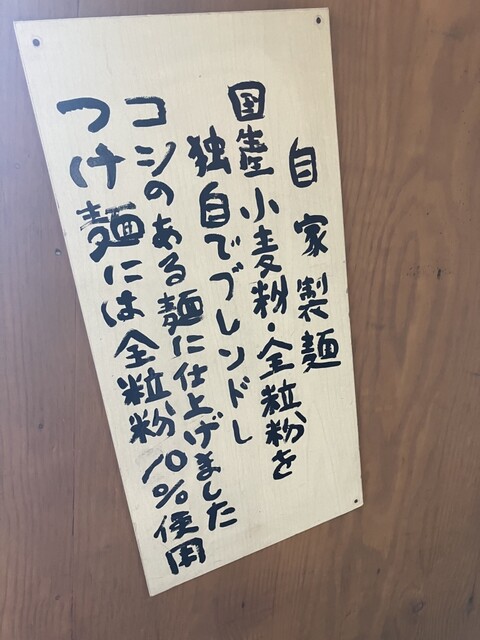 自家製麺
国産小麦粉・全粒粉を
独自でブレンドし
コシのある麺に仕上げました
つけ麺には全粒粉10%使用